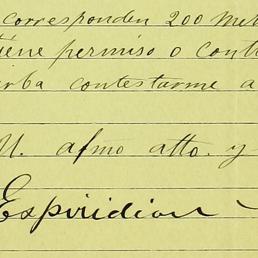 corresponden 200 Met
tiene permiso o cont
contestarme a
U. afmo atto. y
Espiridion